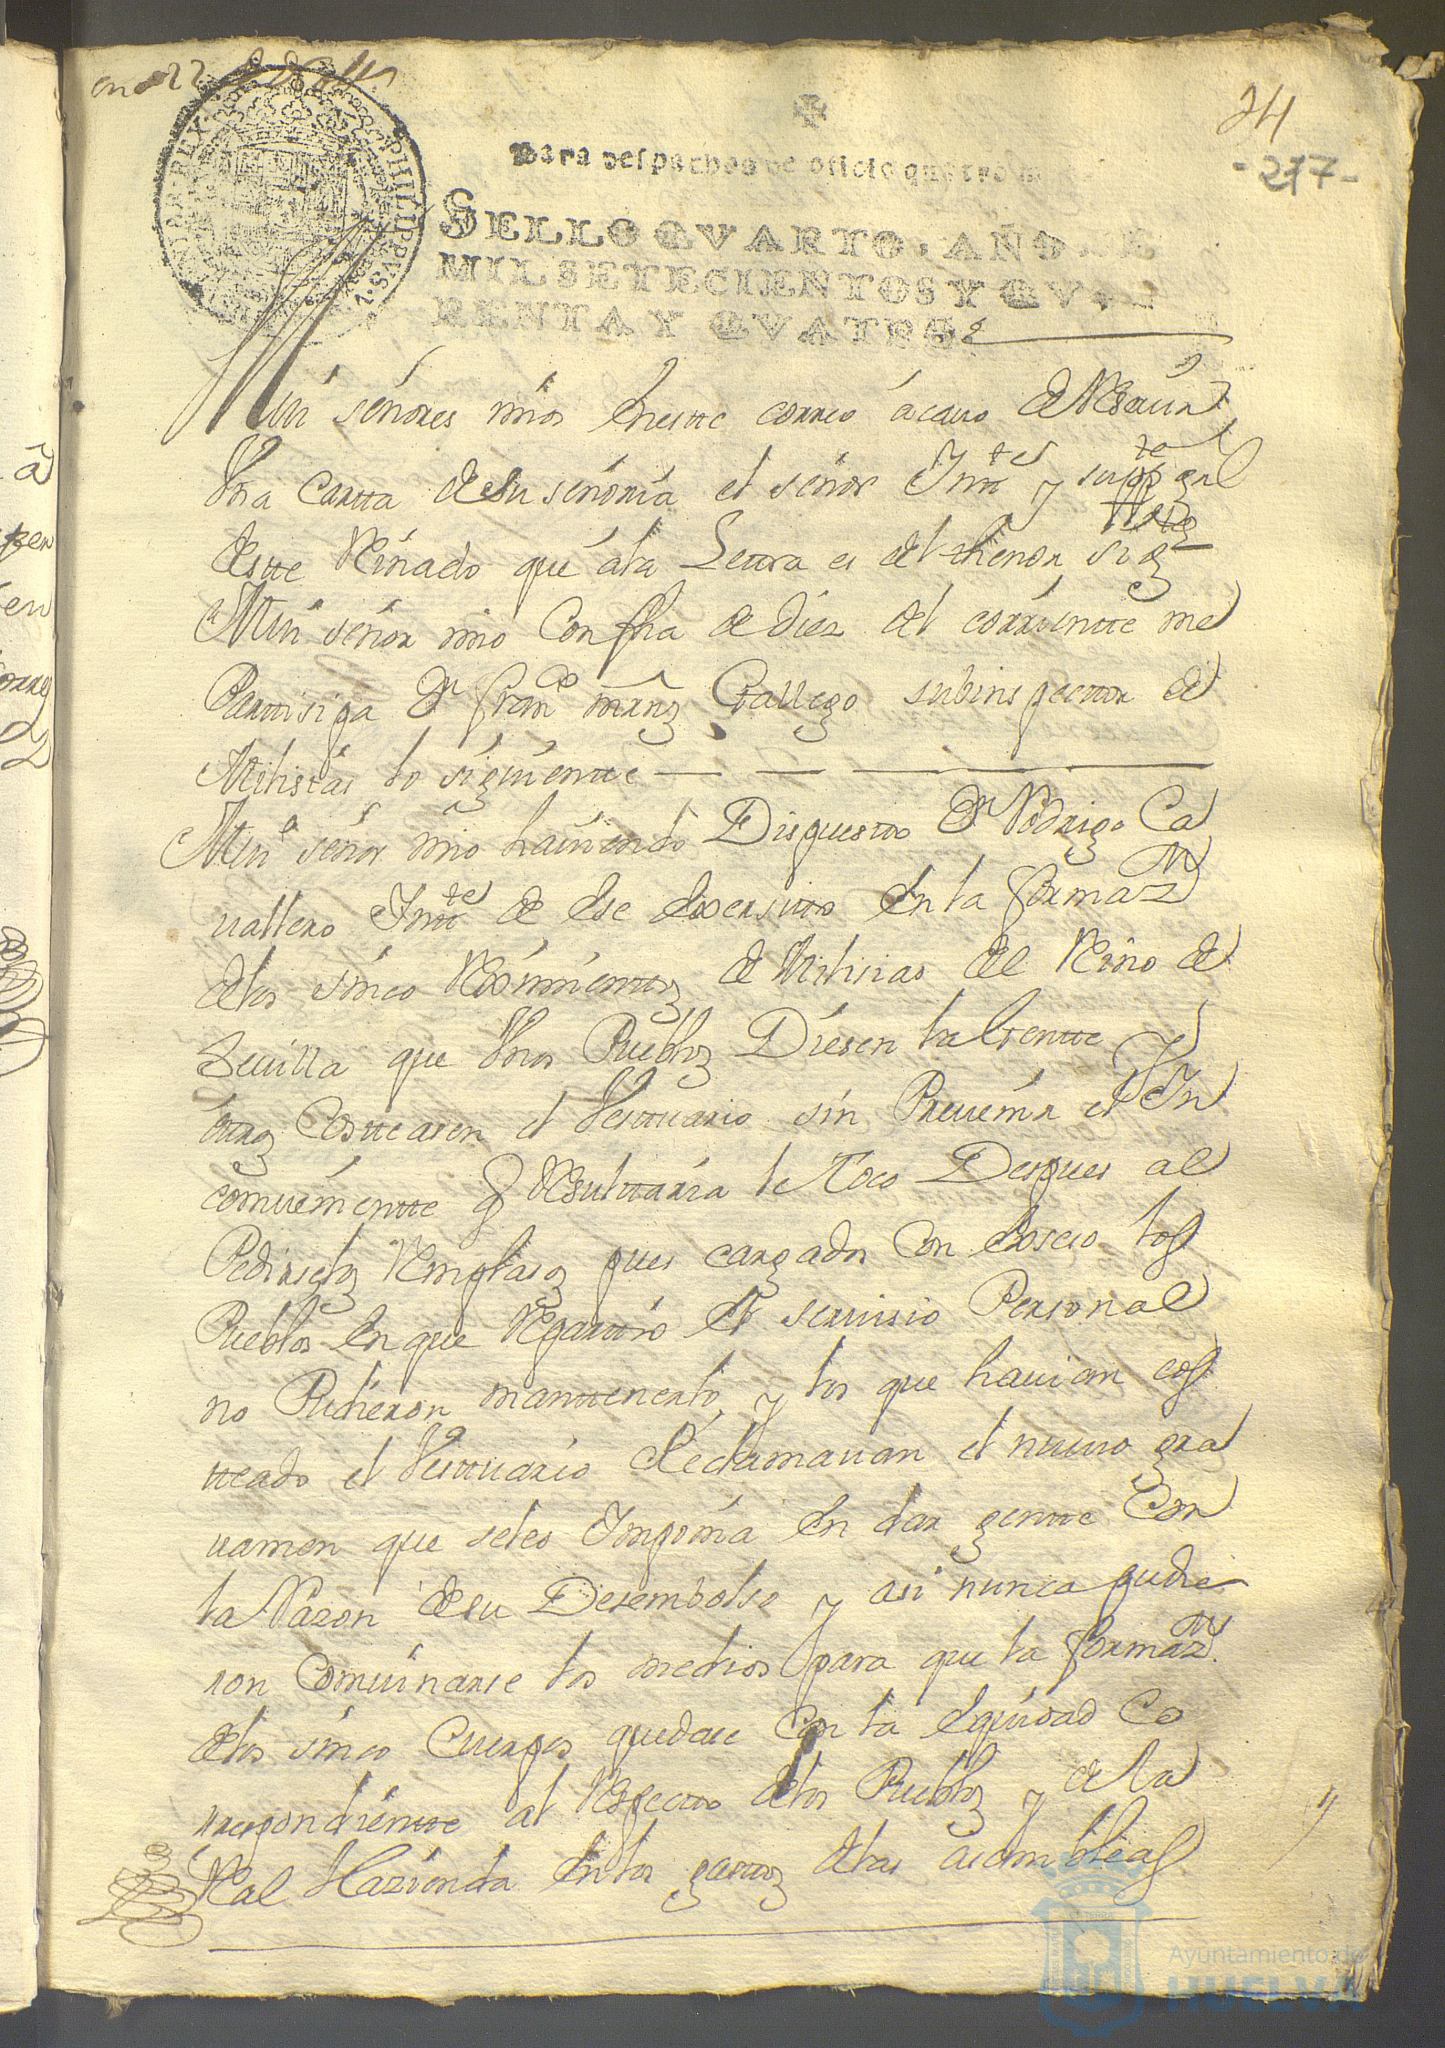 24
-217-
PHILIPPVS. V.
Para despachos de oficio quatro
SELLO QVARTO, AÑO DE
MIL SETECIENTOS Y QVA
RENTA Y QVATRO.
Mui señores mios eneste correo ácauo de Resiuir
Vna Cartta de su señoria el señor Intte y suppte Gral
deste Reinado que ála Letra es del thenor sigte
Mui señor mio Con fha de diez del corriente me
Parttisipa Dn Franco Marnz Gallego subinspector de
Milisias lo siguientte
Mui señor mio hauiendo Dispuesto Dn Rodrigo Ca
uallero Intte de ese Exersitto en la formazn
delos sinco Reximientos de Milisias del Reino de
Seuilla que Vnos Pueblos Diesen la Gentte y
ottros Costeasen el Vestuario sin Preuenir el In
comuenientte q Resultaria le toco Despues al
Pedirselos Remplasos pues cargados Con exseso los
Pueblos en que Repartio el seruisio Personal
no Pudieron manttenerlo, y los que hauian cos
tteado el Vestuario Reclamauan el nueuo gra
uamen que seles Imponia en dar gentte Con
la Razon desu Desembolso y asi nunca pudie
ron Comuinarse los medios para que la formazn
delos sinco Cuerpos quedase Con la equidad Co
rrespondientte al Respectto delos Pueblos y dela
Real Hazienda en los gasttos delas asambleas
Ayuntamiento de
HUELVA